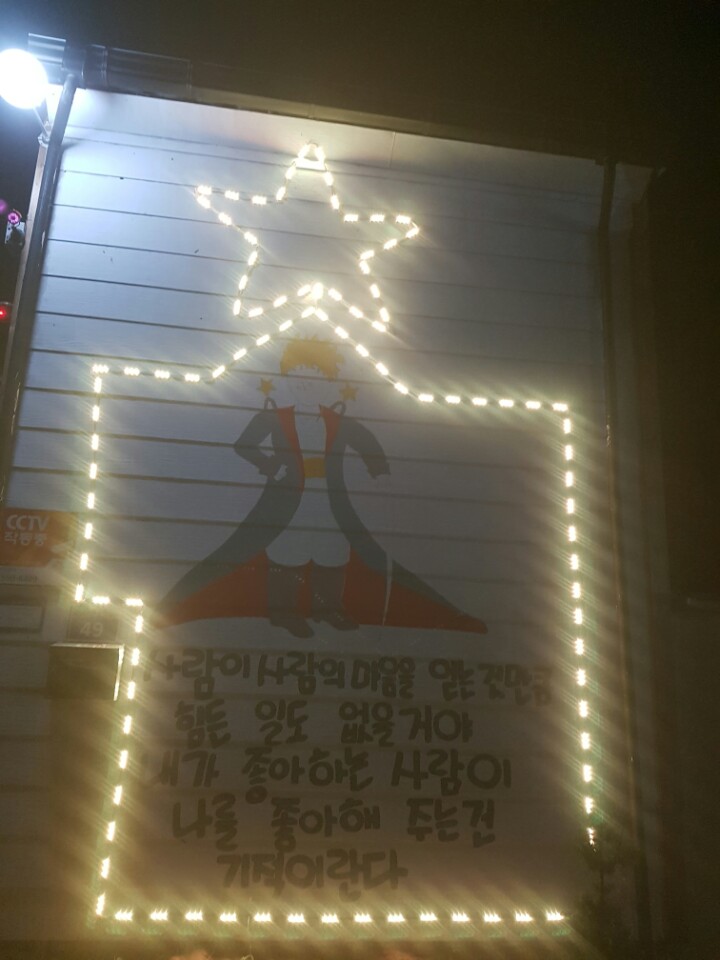 CCTV
작동중
49
사람이 사람의 마음을 얻는 것만큼
힘든 일도 없을거야
내가 좋아하는 사람이
나를 좋아해 주는건
기적이란다